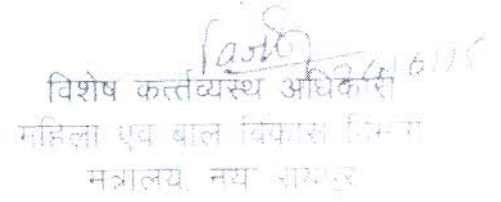 विशेष कर्त्तव्यस्थ अधिकारी
महिला एवं बाल विकास विभाग
मंत्रालय, नया रायपुर